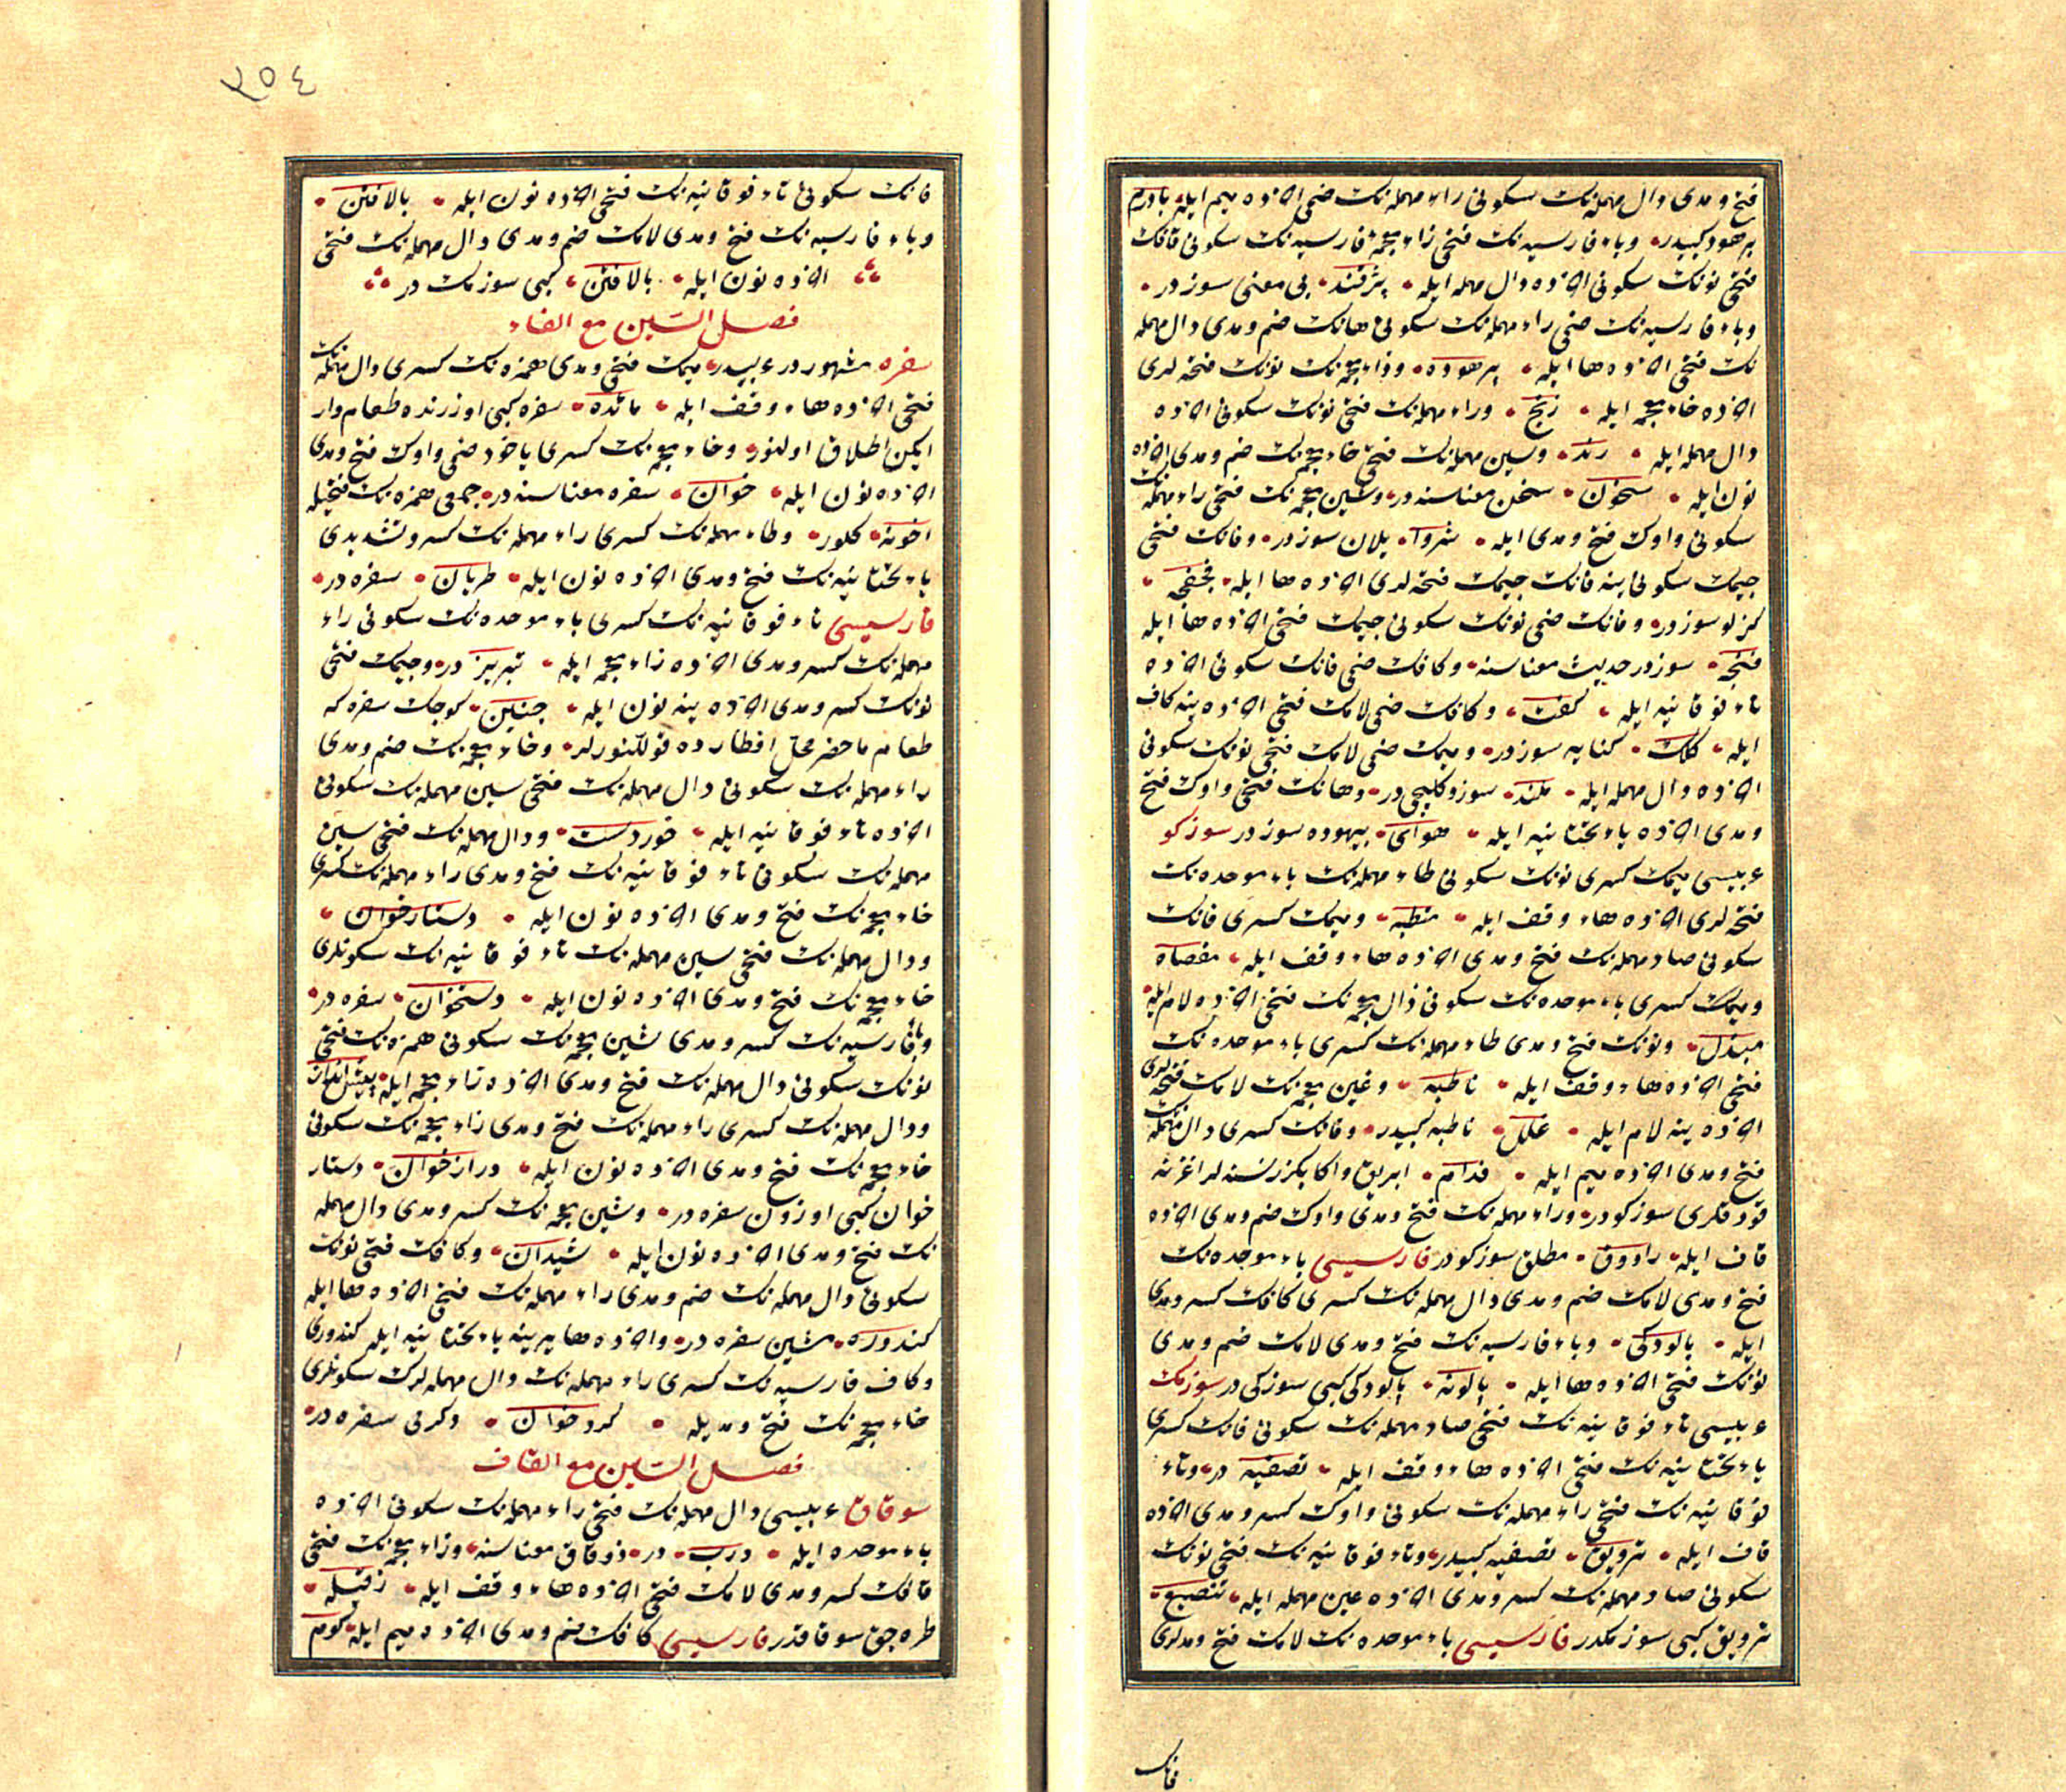 فتح و مدى دال مهمله‌نك سكونى راء مهمله‌نك ضمى اخرده ميم ايله بادرم
برهود كبيدر وباء فارسيه‌نك فتحى زاء معجمهٔ فارسيه‌نك سكونى قافك
فتحى نونك سكونى اخرده دال مهمله ايله پژقند بى معنى سوزدر
وباء فارسيه‌نك ضمى راء مهمله‌نك سكونى هانك ضم ومدى دال مهمله
نك فتحى اخرده ها ايله پرهوده وزاء معجمه‌نك نونك فتحه‌لرى
اخرده خاء معجمه ايله زنخ وراء مهمله‌نك فتحى نونك سكونى اخرده
دال مهمله ايله رند وسين مهمله‌نك فتحى خاء معجمه‌نك ضم ومدى اخرده
نون ايله سخون سخن معناسنه‌در وشين معجمه‌نك فتحى راء مهمله‌نك
سكونى واوك فتح ومدى ايله شروا يلان سوزدر وفانك فتحى
جيمك سكونى ينه فانك جيمك فتحه‌لرى اخرده ها ايله فجفجه
كزلو سوزدر وفانك ضمى نونك سكونى جيمك فتحى اخرده ها ايله
فنجه سوزدر حديث معناسنه وكافك ضمى فانك سكونى اخرده
تاء فوقانيه ايله كفت وكافك ضمى لامك فتحى اخرده ينه كاف
ايله كلك كنايه سوزدر وميمك ضمى لامك فتحى نونك سكونى
اخرده دال مهمله ايله ملند سوز وكليجى‌در وهانك فتحى واوك فتح
ومدى اخرده ياء تحتانيه ايله هواى بيهوده سوزدر سوزكو
عربيسى ميمك كسرى نونك سكونى طاء مهمله‌نك باء موحده‌نك
فتحه‌لرى اخرده هاء وقف ايله منطبه وميمك كسرى فانك
سكونى صاد مهمله‌نك فتح ومدى اخرده هاء وقف ايله مفصاه
وميمك كسرى باء موحده‌نك سكونى ذال معجمه‌نك فتحى اخرده لام ايله
مبذل ونونك فتح ومدى طاء مهمله‌نك كسرى باء موحده‌نك
فتحى اخرده هاء وقف ايله ناطبه وغين معجمه‌نك لامك فتحه‌لرى
اخرده ينه لام ايله غلل ناطبه كبيدر وفانك كسرى دال مهمله‌نك
فتح ومدى اخرده ميم ايله فدام ابريق واكا بكزر نسنه‌لر اغزنه
قودقلرى سوزكودر وراء مهمله‌نك فتح ومدى واوك ضم ومدى اخرده
قاف ايله راووق مطلق سوزكودر فارسيسى باء موحده‌نك
فتح ومدى لامك ضم ومدى دال مهمله‌نك كسرى كافك كسر ومدى
ايله بالودكى وباء فارسيه‌نك فتح ومدى لامك ضم ومدى
نونك فتحى اخرده ها ايله پالونه پالودكى كبى سوزكى‌در سوزمك
عربيسى تاء فوقانيه‌نك فتحى صاد مهمله‌نك سكونى فانك كسرى
ياء تحتانيه‌نك فتحى اخرده هاء وقف ايله تصفيه در وتاء
فوقانيه‌نك فتحى راء مهمله‌نك سكونى واوك كسر ومدى اخرده
قاف ايله ترويق تصفيه كبيدر وتاء فوقانيه‌نك فتحى نونك
سكونى صاد مهمله‌نك كسر ومدى اخرده عين مهمله ايله تنصيع
ترويق كبى سوزمكدر فارسيسى باء موحده‌نك لامك فتح ومدلرى
فانك
٢٥٤
فانك سكونى تاء فوقانيه‌نك فتحى اخرده نون ايله بالافتن
وباء فارسيه‌نك فتح ومدى لامك ضم ومدى دال مهمله‌نك فتحى
اخرده نون ايله بالافتن كبى سوزمك در
فصل السّين مع الفاء
سفره مشهوردر عربيدر ميمك فتحى ومدى همزه‌نك كسرى دال مهمله‌نك
فتحى اخرده هاء وقف ايله مائده سفره كبى اوزرنده طعام وار
ايكن اطلاق اولنور وخاء معجمه‌نك كسرى ياخود ضمى واوك فتح ومدى
اخرده نون ايله خوان سفره معناسنه‌در جمعى همزه‌نك فتحيله
اخونه كلور وطاء مهمله‌نك كسرى راء مهمله‌نك كسر وتشديدى
ياء تحتانيه‌نك فتح ومدى اخرده نون ايله طريان سفره در
فارسيسى تاء فوقانيه‌نك كسرى باء موحده‌نك سكونى راء
مهمله‌نك كسر ومدى اخرده زاء معجمه ايله تبريز در وجيمك فتحى
نونك كسر ومدى اخرده ينه نون ايله جنين كوچك سفره كه
طعام ماحضر محلّ افطارده قوللنورلر وخاء معجمه‌نك ضم ومدى
راء مهمله‌نك سكونى دال مهمله‌نك فتحى سين مهمله‌نك سكونى
اخرده تاء فوقانيه ايله خوردست ودال مهمله‌نك فتحى سين
مهمله‌نك سكونى تاء فوقانيه‌نك فتح ومدى راء مهمله‌نك كسرى
خاء معجمه‌نك فتح ومدى اخرده نون ايله دستارخوان
ودال مهمله‌نك فتحى سين مهمله‌نك تاء فوقانيه‌نك سكونلرى
خاء معجمه‌نك فتح ومدى اخرده نون ايله دستخوان سفره در
وباء فارسيه‌نك كسر ومدى شين معجمه‌نك سكونى همزه‌نك فتحى
نونك سكونى دال مهمله‌نك فتح ومدى اخرده زاء معجمه ايله پيش انداز
ودال مهمله‌نك كسرى راء مهمله‌نك فتح ومدى زاء معجمه‌نك سكونى
خاء معجمه‌نك فتح ومدى اخرده نون ايله درازخوان دستار
خوان كبى اوزون سفره در وشين معجمه‌نك كسر ومدى دال مهمله
نك فتح ومدى اخرده نون ايله شيدان وكافك فتحى نونك
سكونى دال مهمله‌نك ضم ومدى راء مهمله‌نك فتحى اخرده ها ايله
كندوره مشين سفره در واخرده ها يرينه ياء تحتانيه ايله كندورى
وكاف فارسيه‌نك كسرى راء مهمله‌نك دال مهمله‌لرك سكونلرى
خاء معجمه‌نك فتح ومديله كردخوان دكرمى سفره در
فصل السّين مع القاف
سوقاق عربيسى دال مهمله‌نك فتحى راء مهمله‌نك سكونى اخرده
باء موحده ايله درب در زوقاق معناسنه وزاء معجمه‌نك فتحى
قافك كسر ومدى لامك فتحى اخرده هاء وقف ايله زقيله
طره‌جق سوقاقدر فارسيسى كافك ضم ومدى اخرده ميم ايله كوم